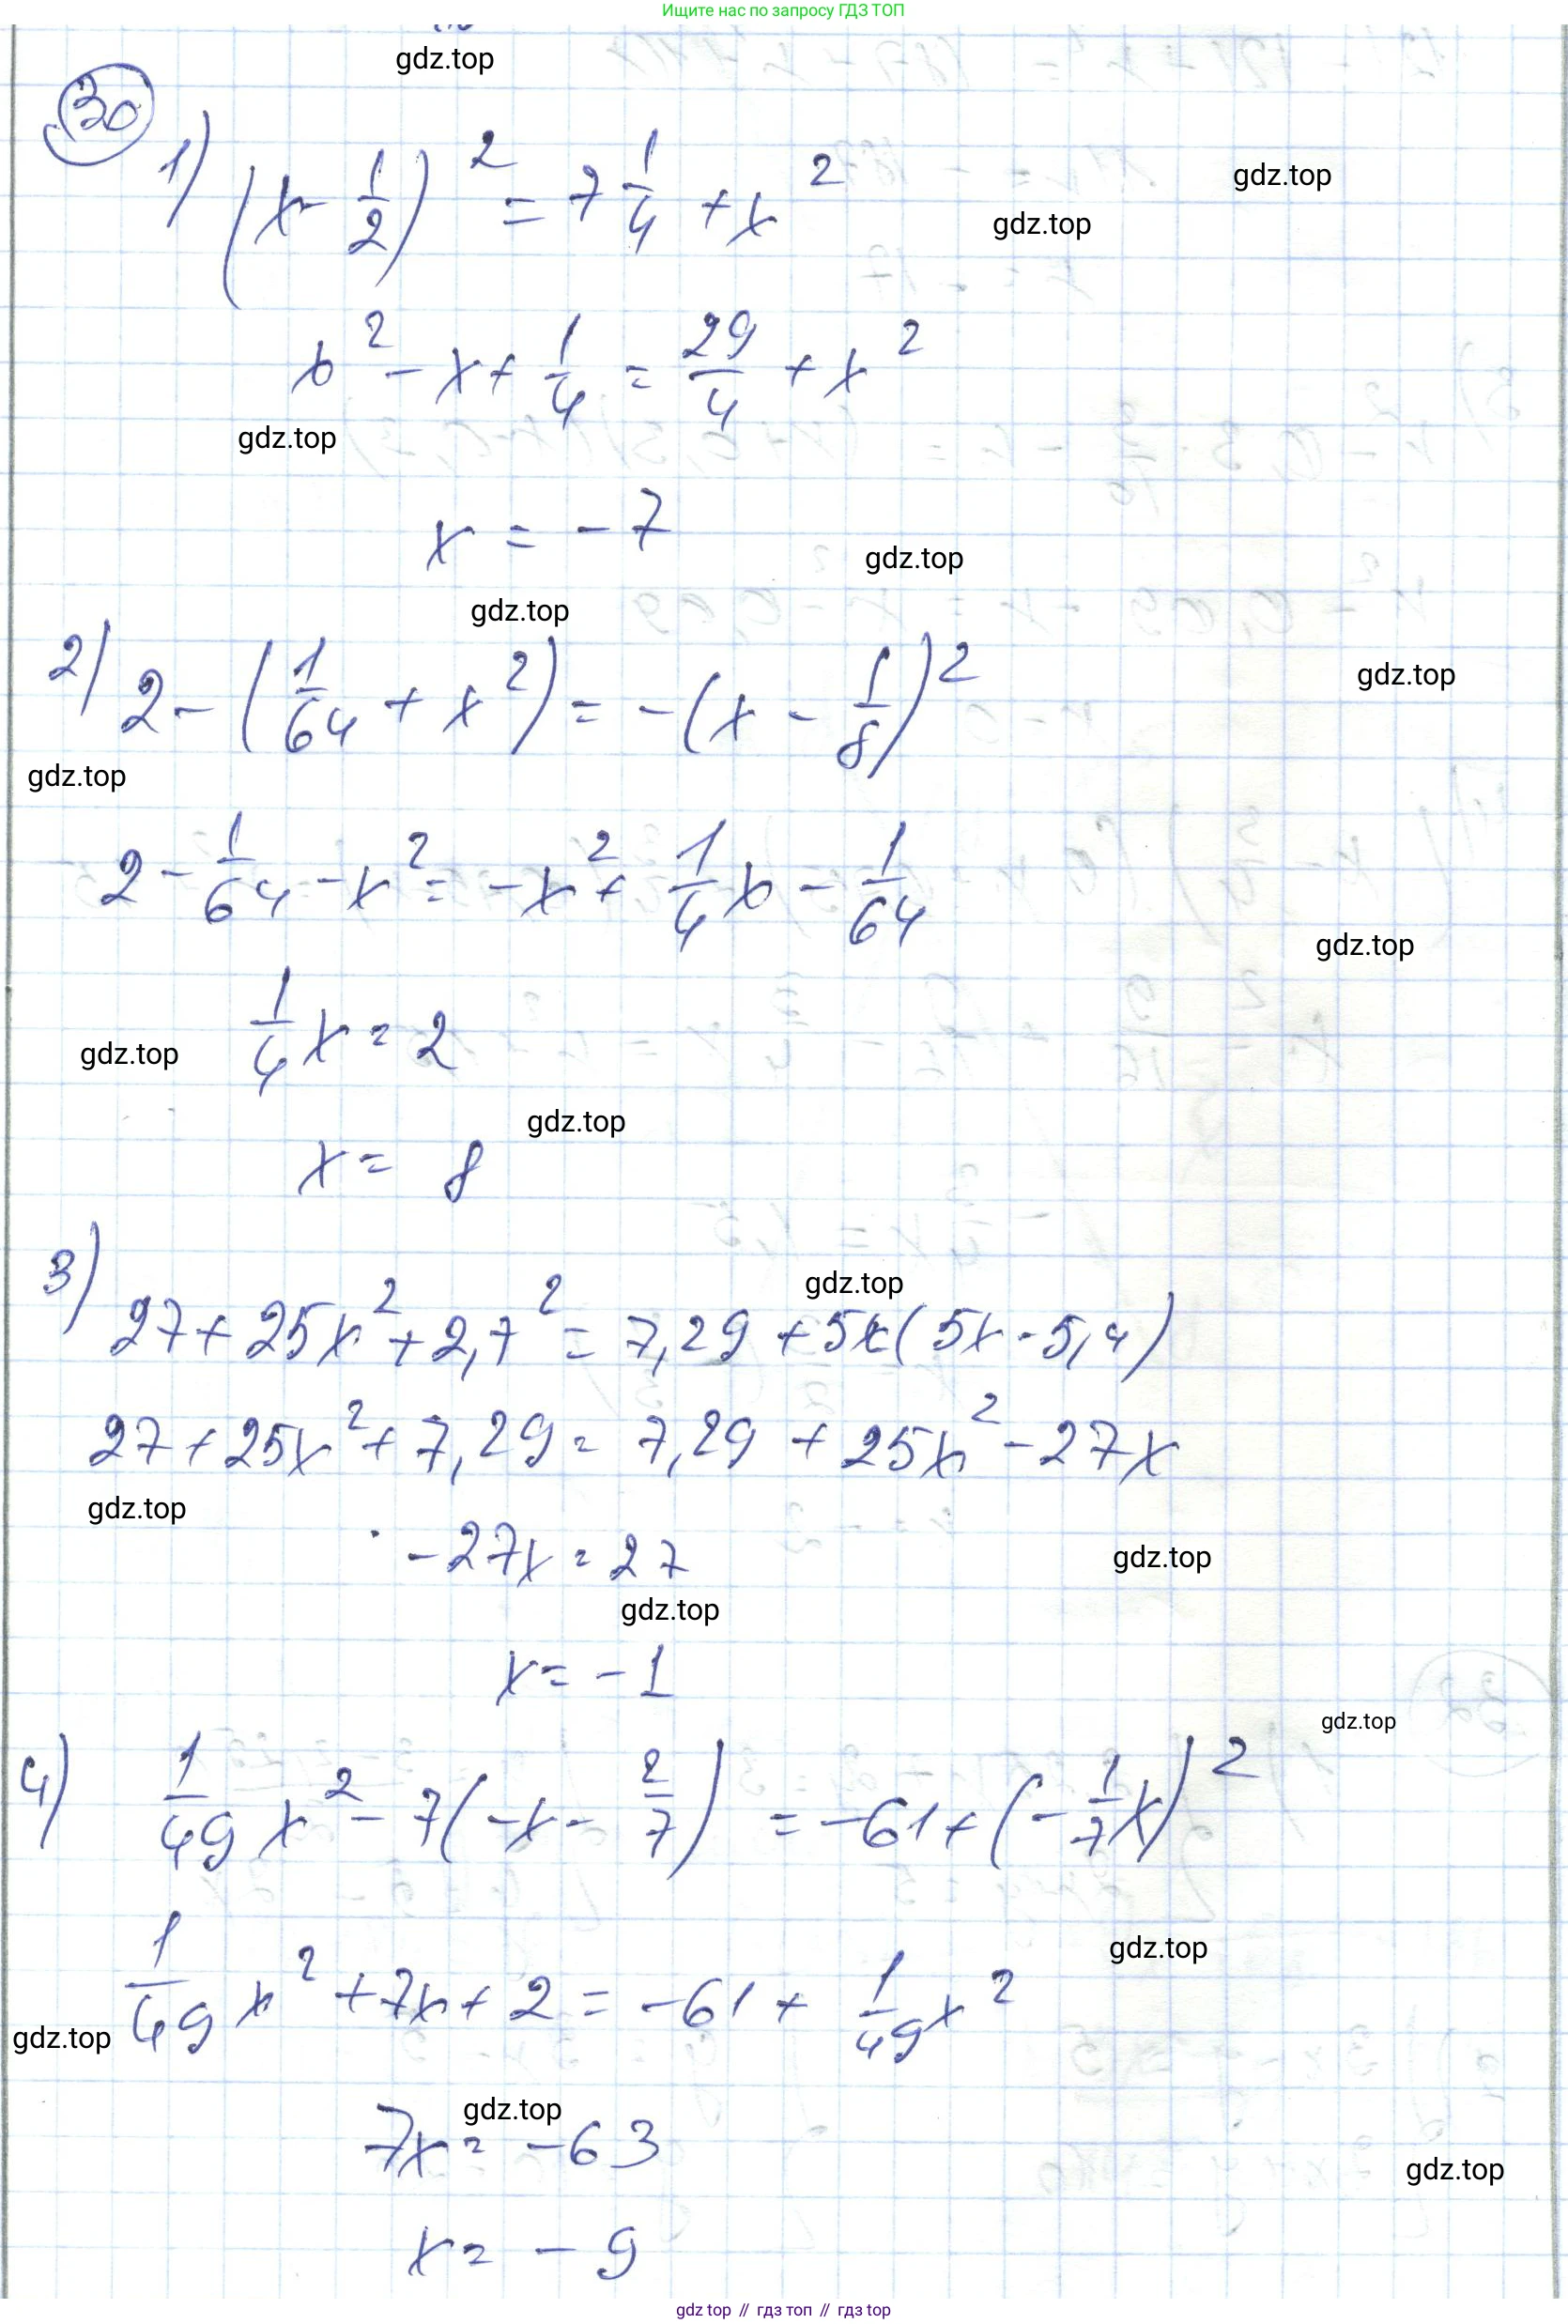 Ищите нас по запросу ГДЗ ТОП
gdz.top
30
1) (x - 1/2)² = 7 1/4 + x²
gdz.top
gdz.top
x² - x + 1/4 = 29/4 + x²
gdz.top
x = -7
gdz.top
gdz.top
2) 2 - (1/64 + x²) = -(x - 1/8)²
gdz.top
gdz.top
2 - 1/64 - x² = -x² + 1/4 x - 1/64
gdz.top
1/4 x = 2
gdz.top
gdz.top
x = 8
3) 27 + 25x² + 2,7² = 7,29 + 5x(5x - 5,4)
gdz.top
27 + 25x² + 7,29 = 7,29 + 25x² - 27x
gdz.top
-27x = 27
gdz.top
gdz.top
x = -1
gdz.top
4) 1/49 x² - 7(-x - 2/7) = -61 + (-1/7 x)²
gdz.top
1/49 x² + 7x + 2 = -61 + 1/49 x²
gdz.top
gdz.top
7x = -63
gdz.top
x = -9
gdz top // гдз топ // гдз top